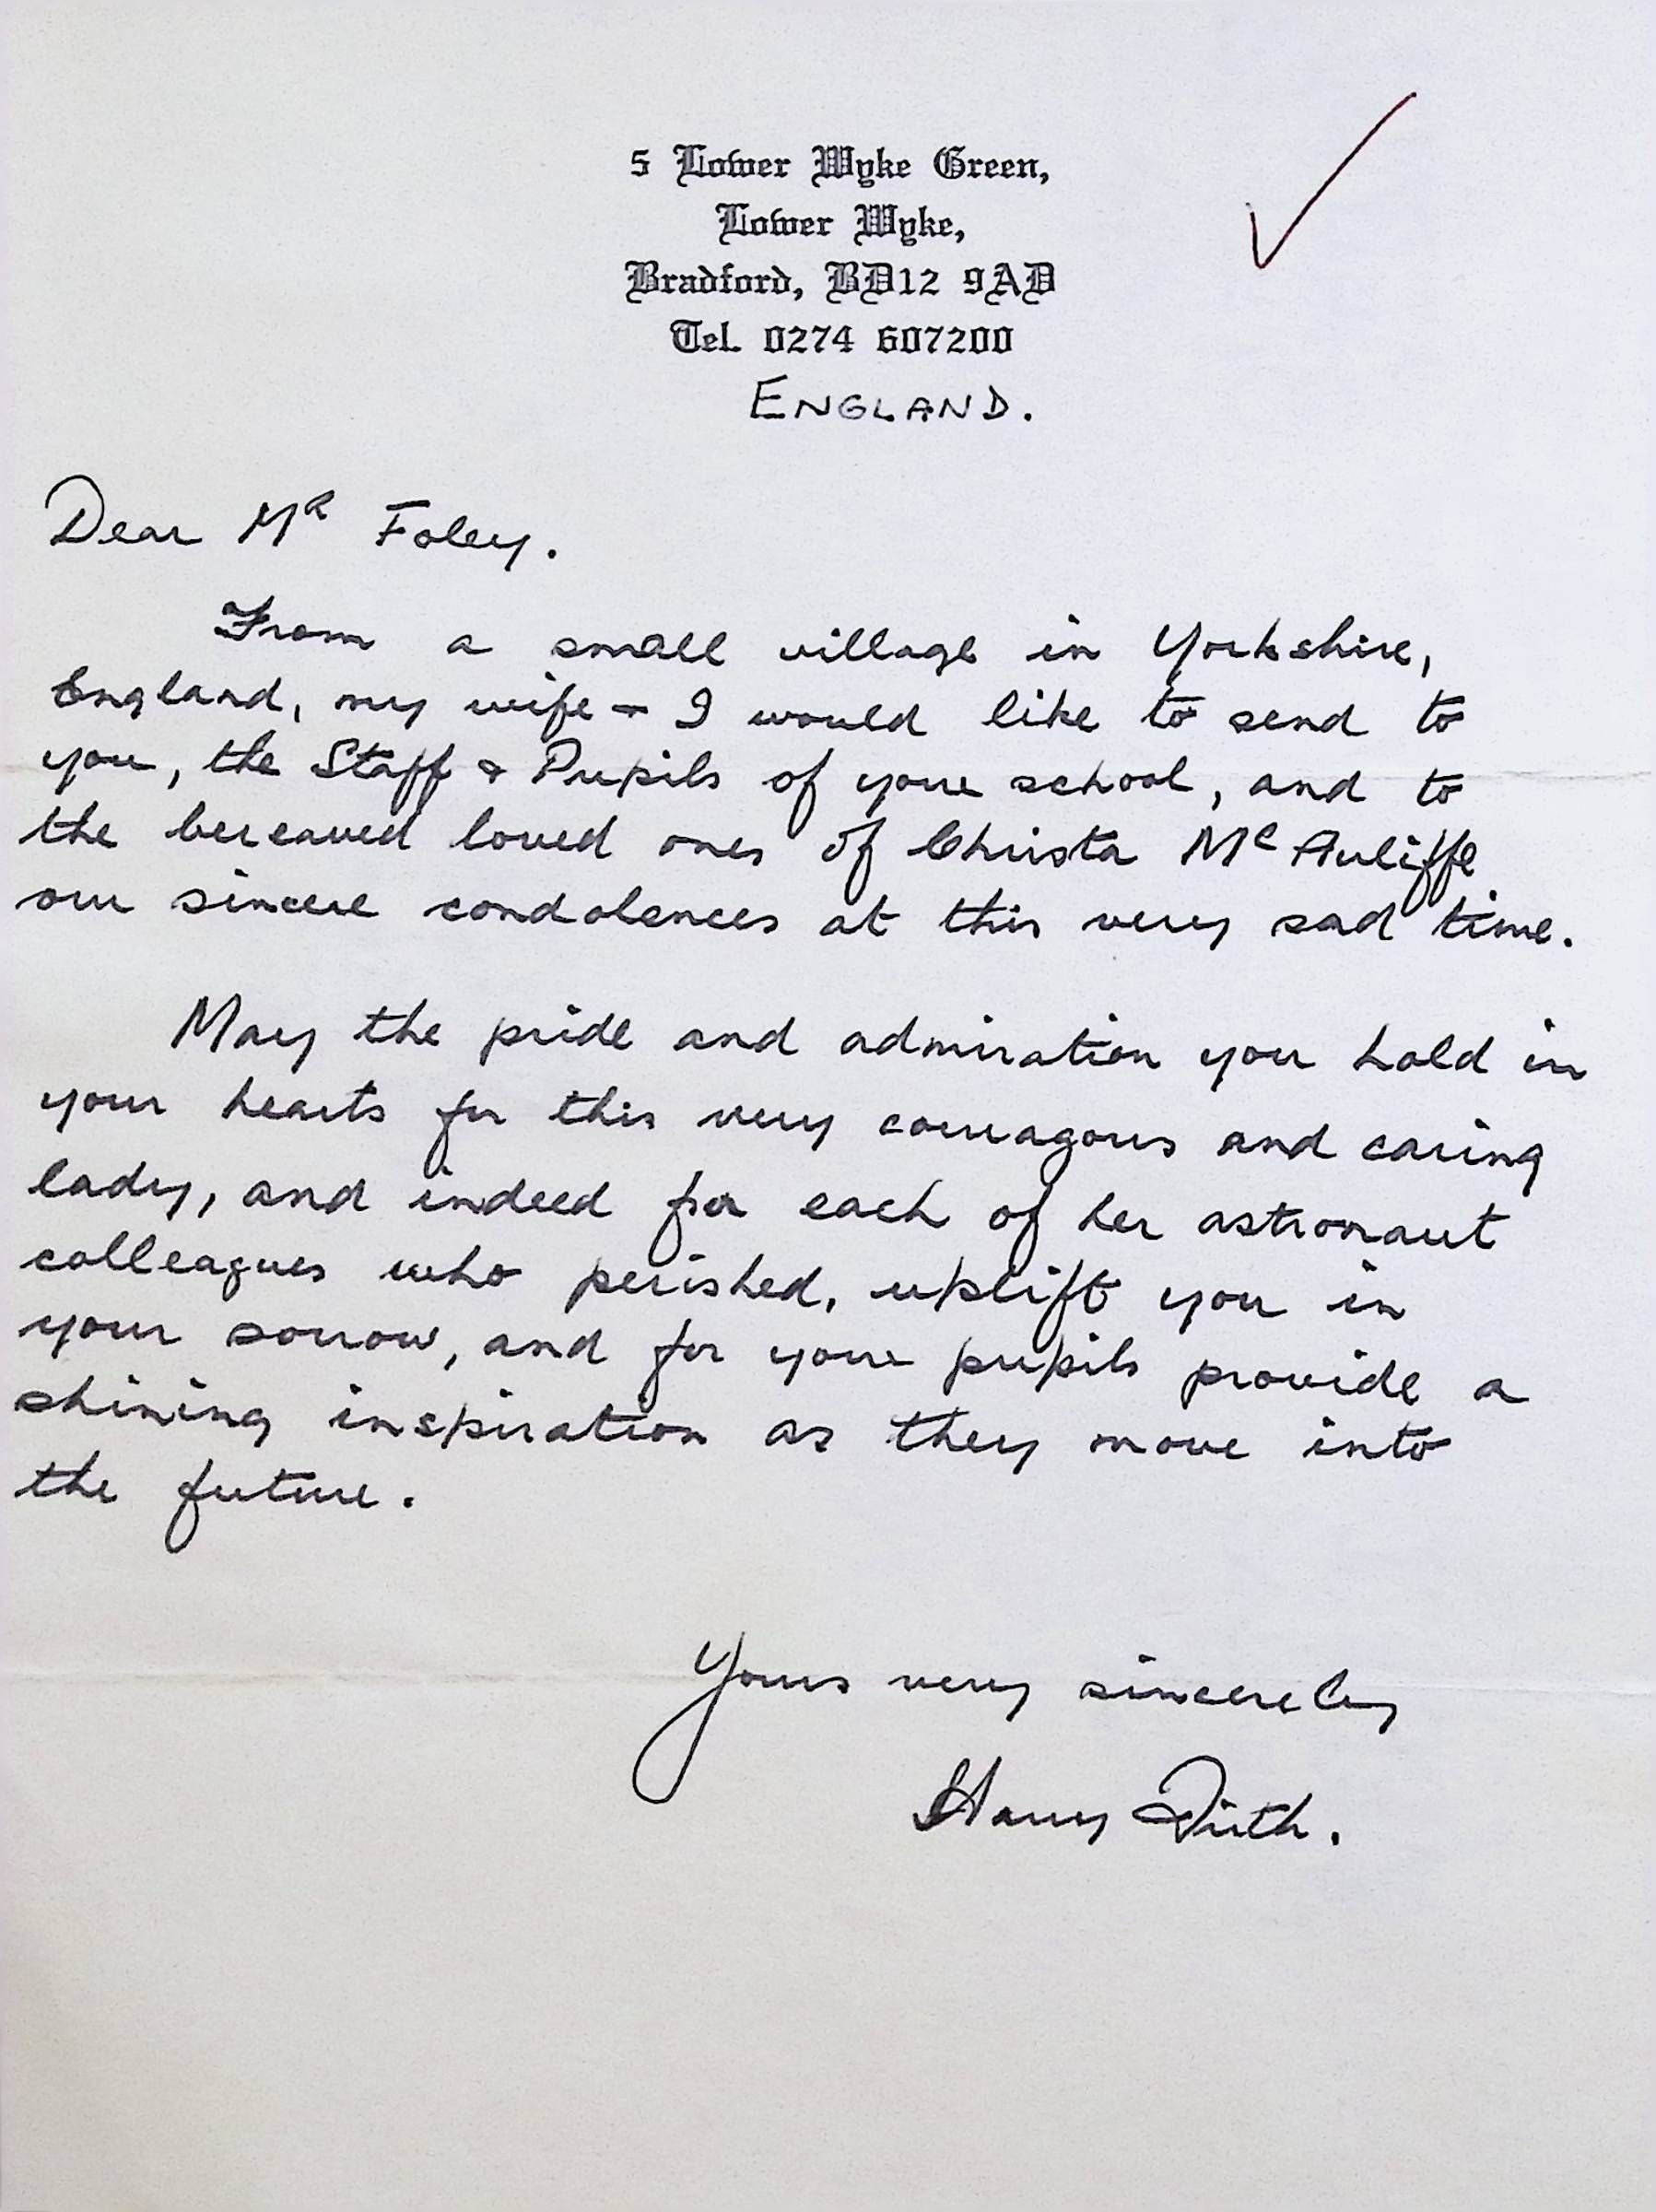 5 Lower Wyke Green,
Lower Wyke,
Bradford, BD12 9AD
Tel. 0274 607200
ENGLAND.
Dear Mr Foley.
From a small village in Yorkshire,
England, my wife & I would like to send to
you, the Staff & Pupils of your school, and to
the bereaved loved ones of Christa McAuliffe
our sincere condolences at this very sad time.
May the pride and admiration you hold in
your hearts for this very courageous and caring
lady, and indeed for each of her astronaut
colleagues who perished, uplift you in
your sorrow, and for your pupils provide a
shining inspiration as they move into
the future.
Yours very sincerely
Harry Firth.